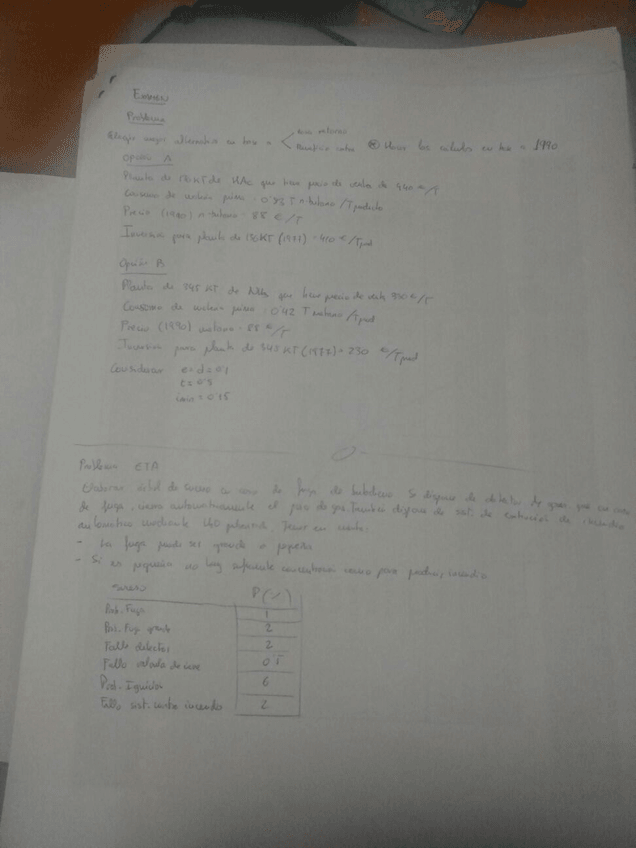 Examen
Problema
Elegir mejor alternativa en base a
Hacer los cálculos en base a 1990
Opción A
Planta de 150 KT de HAc que tiene precio de venta de 440 €/T
Consumo de materia prima = 0'83 T n-butano/T producto
Precio (1990) n-butano = 88 €/T
Inversión para planta de 150 KT (1977) = 410 €/Tprod
Opción B
Planta de 345 KT de que tiene precio de venta 350 €/T
Consumo de materia prima = 0'42 T metano/Tprod
Precio (1990) metano = 88 €/T
Inversión para planta de 345 KT (1977) = 230 €/Tprod
Considerar e = d = 0'1
t = 0'3
= 0'15
Problema ETA
Elaborar árbol de sucesos en caso de fuga de Se dispone de detector de gases que en caso
de fuga, cierra automáticamente el paso de gas. También dispone de sist. de extinción de incendios
automático mediante Tener en cuenta:
- La fuga puede ser grande o pequeña
- Si es pequeña no hay suficiente concentración como para producir incendio
Suceso P(%)
Prob. Fuga 1
Prob. Fuga grande 2
Fallo detector 2
Fallo de cierre
Prob. Ignición 6
Fallo sist. contra incendios 2